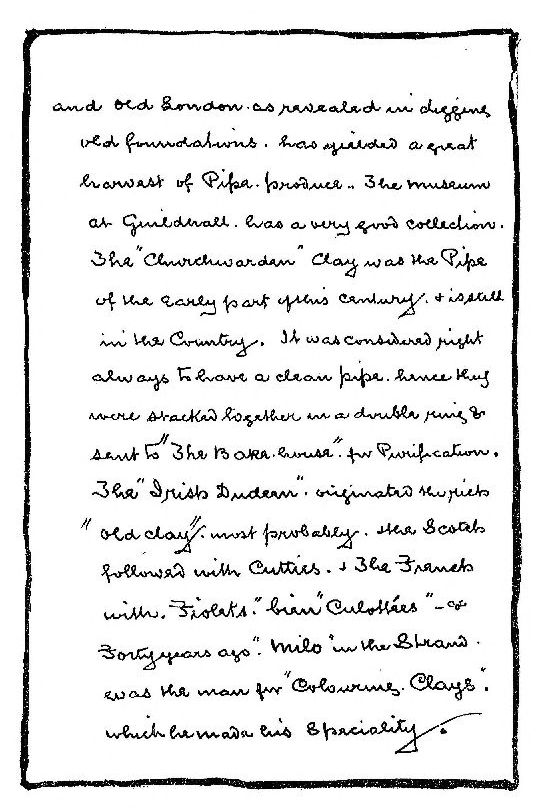 and old London. as revealed in digging
old foundations. has yielded a great
harvest of Pipe. produce.. The museum
at Guildhall. has a very good collection.
The "Churchwarden" Clay was the Pipe
of the early part of this century. & is still
in the Country. It was considered right
always to have a clean pipe. hence they
were stacked together in a double ring &
sent to "The Bake-house". for Purification.
The "Irish Dudeen". originated the rich
"old clay". most probably. the Scotch
followed with Cutties. & The French
with. Fiolets." bien "Culottées"
Forty years ago". Milo "in the Strand.
was the man for "Colouring. Clays".
which he made his Speciality.